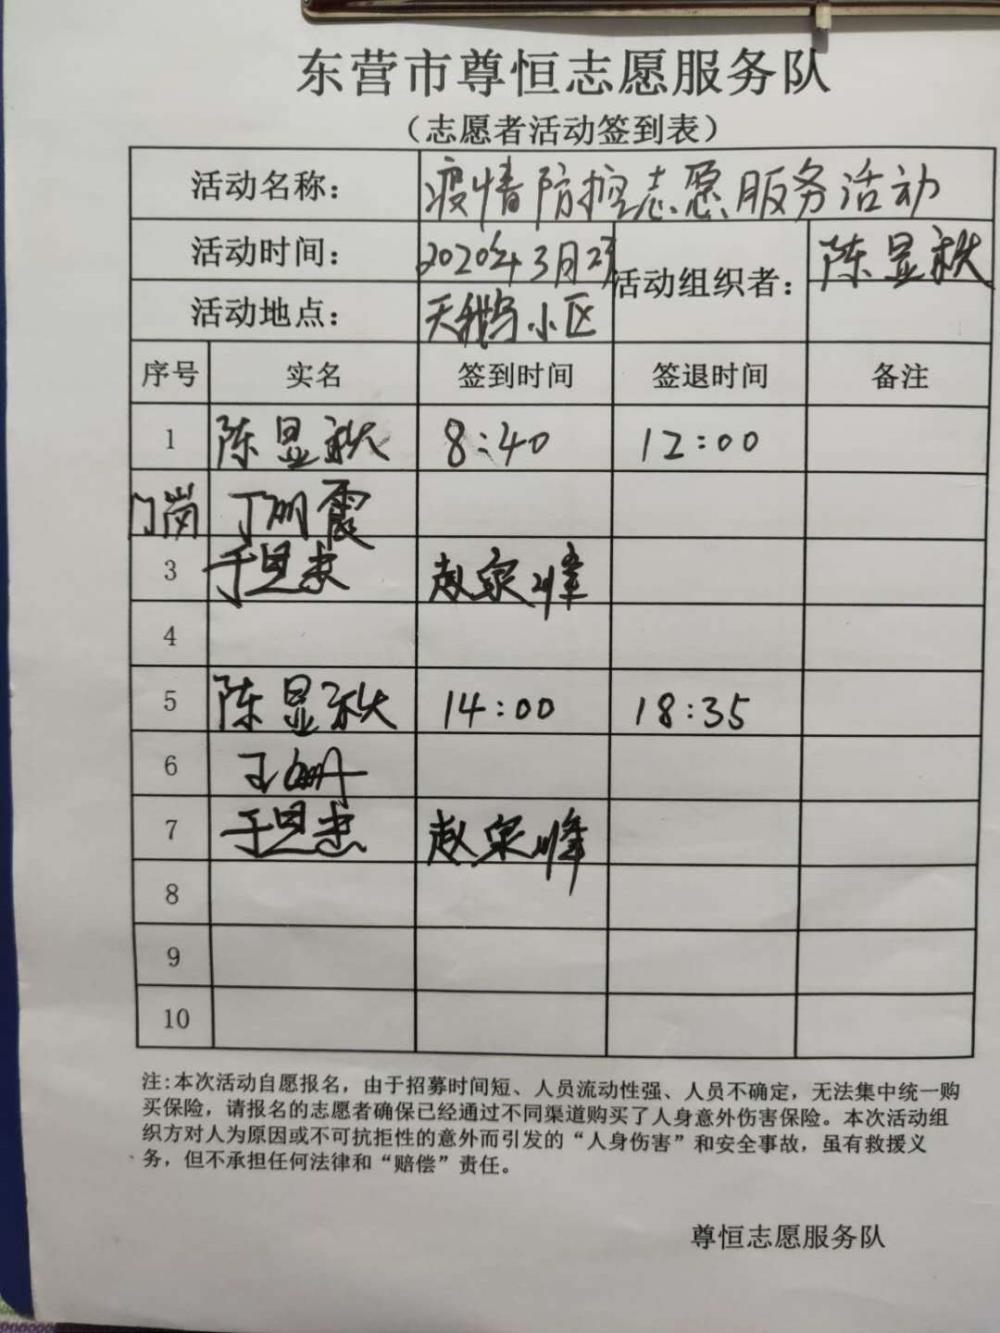 东营市尊恒志愿服务队
（志愿者活动签到表）
活动名称： 疫情防控志愿服务活动
活动时间： 2020年3月2 活动组织者： 陈显秋
活动地点： 天鹅小区
序号 实名 签到时间 签退时间 备注
1 陈显秋 8:40 12:00
门岗 丁丽霞
3 于 赵宗峰
4
5 陈显秋 14:00 18:35
6 王
7 于 赵宗峰
8
9
10
注:本次活动自愿报名，由于招募时间短、人员流动性强、人员不确定，无法集中统一购
买保险，请报名的志愿者确保已经通过不同渠道购买了人身意外伤害保险。本次活动组
织方对人为原因或不可抗拒性的意外而引发的“人身伤害”和安全事故，虽有救援义
务，但不承担任何法律和“赔偿”责任。
尊恒志愿服务队